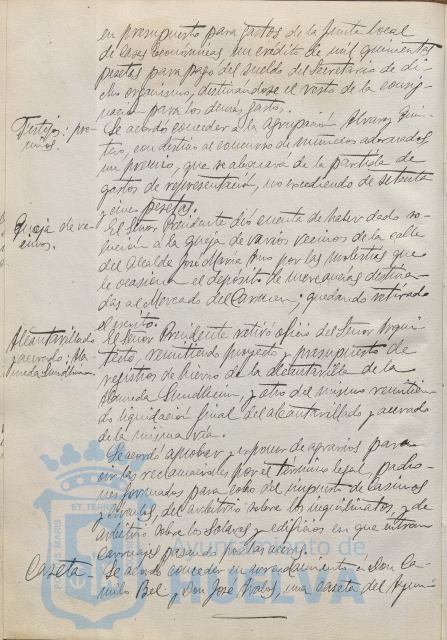 en presupuesto para gastos de la Junta local
de Casas Económicas, un crédito de mil quinientas
pesetas para pago del sueldo del Secretario de di-
cho organismo, destinándose el resto de la consig-
nación para los demás gastos.
Festejos: pre-
mios.
Se acordó conceder a la agrupación Alvarez Quin-
tero, con destino al concurso de mantones adornados
un premio, que se abonará de la partida de
gastos de representación, no excediendo de setenta
y cinco pesetas.
Queja de ve-
cinos.
El Señor Presidente dió cuenta de haber dado so-
lución a la queja de varios vecinos de la calle
del Alcalde José María por las molestias que
le ocasiona el depósito de mercancías destina-
das al Mercado del Carmen; quedando retirado
el escrito.
Alcantarillado
y acerado: Ala-
meda Sundheim.
El Señor Presidente retiró oficio del Señor Arqui-
tecto, remitiendo proyecto y presupuesto de
registros de hierro de la alcantarilla de la
Alameda Sundheim, y otro del mismo remitien-
do liquidación final del alcantarillado y acerado
de la misma vía.
Se acordó aprobar y exponer de agravios para
oir las reclamaciones por el término legal, padro-
nes formados para cobro del impuesto de casinos
y círculos, del arbitrio sobre los inquilinatos, y de
arbitrio sobre los solares y edificios en que entran
carruajes pasando por las aceras.
Caseta
Se acordó conceder en arrendamiento á Don Ca-
milo Bel y Don José una caseta del Ayun-
ET TERRAE
PORTUS MARIS
Ayuntamiento de
HUELVA